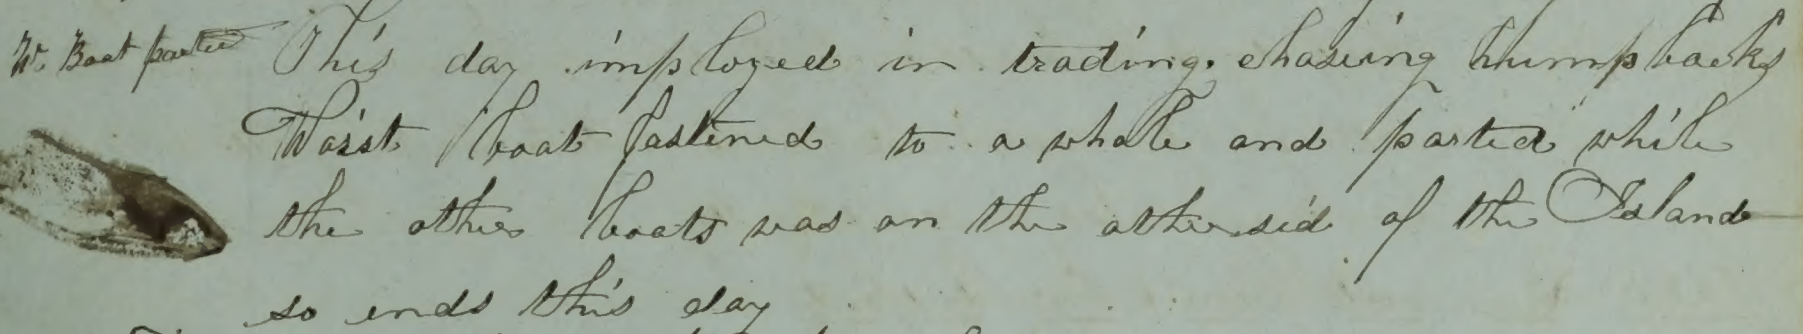 W. Boat parted
This day imployed in trading. chasing humpbacks
Waist boat fastened to a whale and parted while
the other boats was on the other sid of the Island
so ends this day